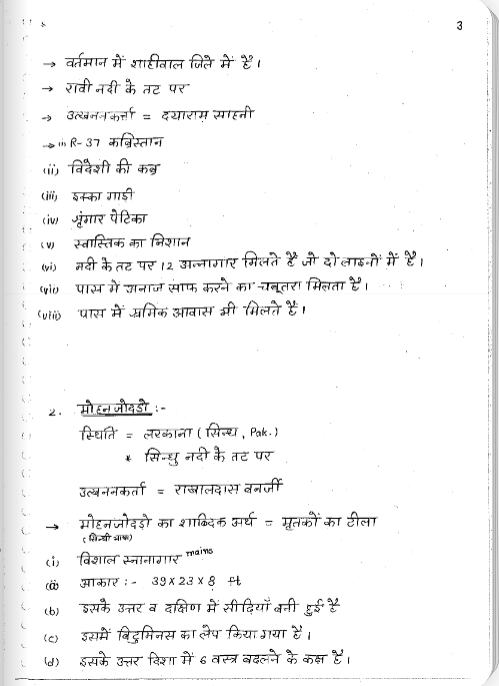 3
→ वर्तमान में शाहीवाल जिले में है।
→ रावी नदी के तट पर
→ उत्खननकर्त्ता = दयाराम साहनी
→ (i) R-37 कब्रिस्तान
(ii) विदेशी की कब्र
(iii) इक्का गाड़ी
(iv) श्रृंगार पेटिका
(v) स्वास्तिक का निशान
(vi) नदी के तट पर 12 अन्नागार मिलते है जो दो लाइनों में है।
(vii) पास में अनाज साफ करने का चबूतरा मिलता है।
(viii) पास में श्रमिक आवास भी मिलते है।
2. मोहनजोदड़ो :-
स्थिति = लरकाना (सिन्ध, Pak.)
* सिन्धु नदी के तट पर
उत्खननकर्ता = राखालदास बनर्जी
→ मोहनजोदड़ो का शाब्दिक अर्थ = मृतकों का टीला
(सिन्धी भाषा)
(i) विशाल स्नानागार mains
(a) आकार :- 39 x 23 x 8 ft
(b) इसके उत्तर व दक्षिण में सीढ़ियाँ बनी हुई है
(c) इसमें बिटुमिनस का लेप किया गया है।
(d) इसके उत्तर दिशा में 6 वस्त्र बदलने के कक्ष है।